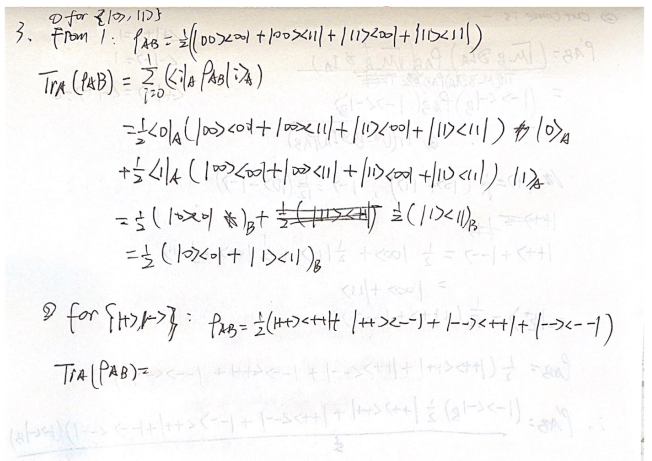 ① for {|0>, |1>}
3. From 1: ρAB = ½(|00><00| + |00><11| + |11><00| + |11><11|)
TrA (ρAB) = Σ_{i=0}^{1} (<i|A ρAB |i>A)
= ½<0|A (|00><00| + |00><11| + |11><00| + |11><11|) |0>A
+ ½<1|A (|00><00| + |00><11| + |11><00| + |11><11|) |1>A
= ½ (|0><0|)B + ½ (|1><1|)B
= ½ (|0><0| + |1><1|)B
② for {|+>, |->} : ρAB = ½(|++><++| + |++><--| + |--><++| + |--><--|)
TrA (ρAB) =